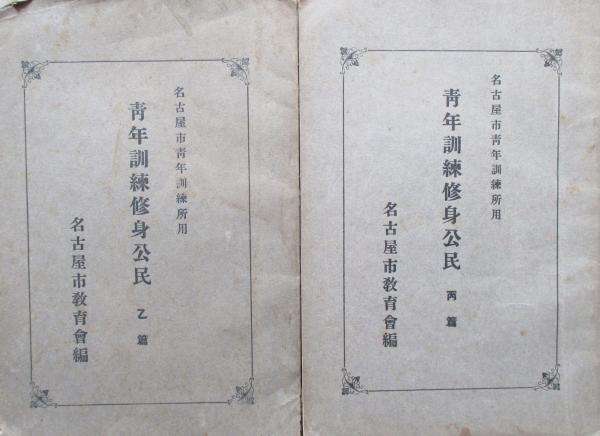 名古屋市青年訓練所用
青年訓練修身公民 丙篇
名古屋市教育會編
名古屋市青年訓練所用
青年訓練修身公民 乙篇
名古屋市教育會編